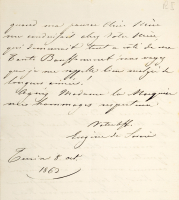 quand ma pauvre chère Mère
me conduisait chez Votre Mère,
qui demeurait tout à côté de ma
Tante Beauffremont. vous voyez
que je me rappelle bien malgré de
longues années.
Agréez Madame la Marquise
mes hommages respectueux
Eugène de
8
1860